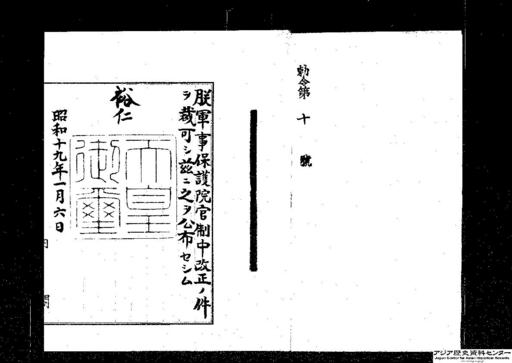 勅令第十號
朕軍事保護院官制中改正ノ件
ヲ裁可シ茲ニ之ヲ公布セシム
裕仁
天皇御璽
昭和十九年一月六日
内閣
アジア歴史資料センター
Japan Center for Asian Historical Records